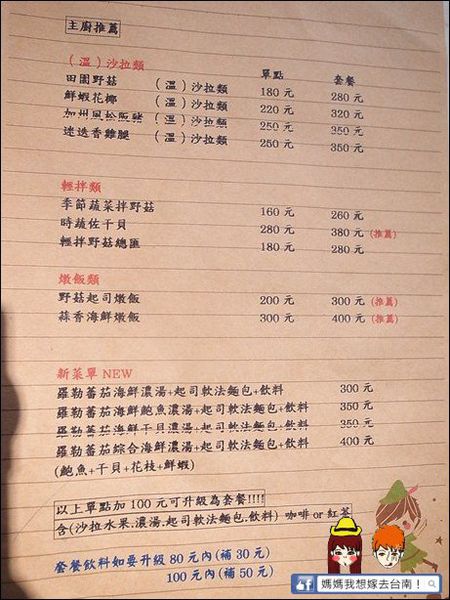 主廚推薦
(溫)沙拉類 單點 套餐
田園野菇 (溫)沙拉類 180 元 280 元
鮮蝦花椰 (溫)沙拉類 220 元 320 元
加州風松阪豬 (溫)沙拉類 250 元 350 元
迷迭香雞腿 (溫)沙拉類 250 元 350 元
輕拌類
季節蔬菜拌野菇 160 元 260 元
時蔬佐干貝 280 元 380 元 (推薦)
輕拌野菇總匯 180 元 280 元
燉飯類
野菇起司燉飯 200 元 300 元 (推薦)
蒜香海鮮燉飯 300 元 400 元 (推薦)
新菜單 NEW
羅勒蕃茄海鮮濃湯+起司軟法麵包+飲料 300 元
羅勒蕃茄海鮮鮑魚濃湯+起司軟法麵包+飲料 350 元
羅勒蕃茄海鮮干貝濃湯+起司軟法麵包+飲料 350 元
羅勒蕃茄綜合海鮮濃湯+起司軟法麵包+飲料 400 元
(鮑魚+干貝+花枝+鮮蝦)
以上單點加 100 元可升級為套餐!!!!
含(沙拉水果.濃湯.起司軟法麵包.飲料) 咖啡 or 紅茶
套餐飲料如要升級 80 元內(補 30 元)
100 元內(補 50 元)
f 媽媽我想嫁去台南!